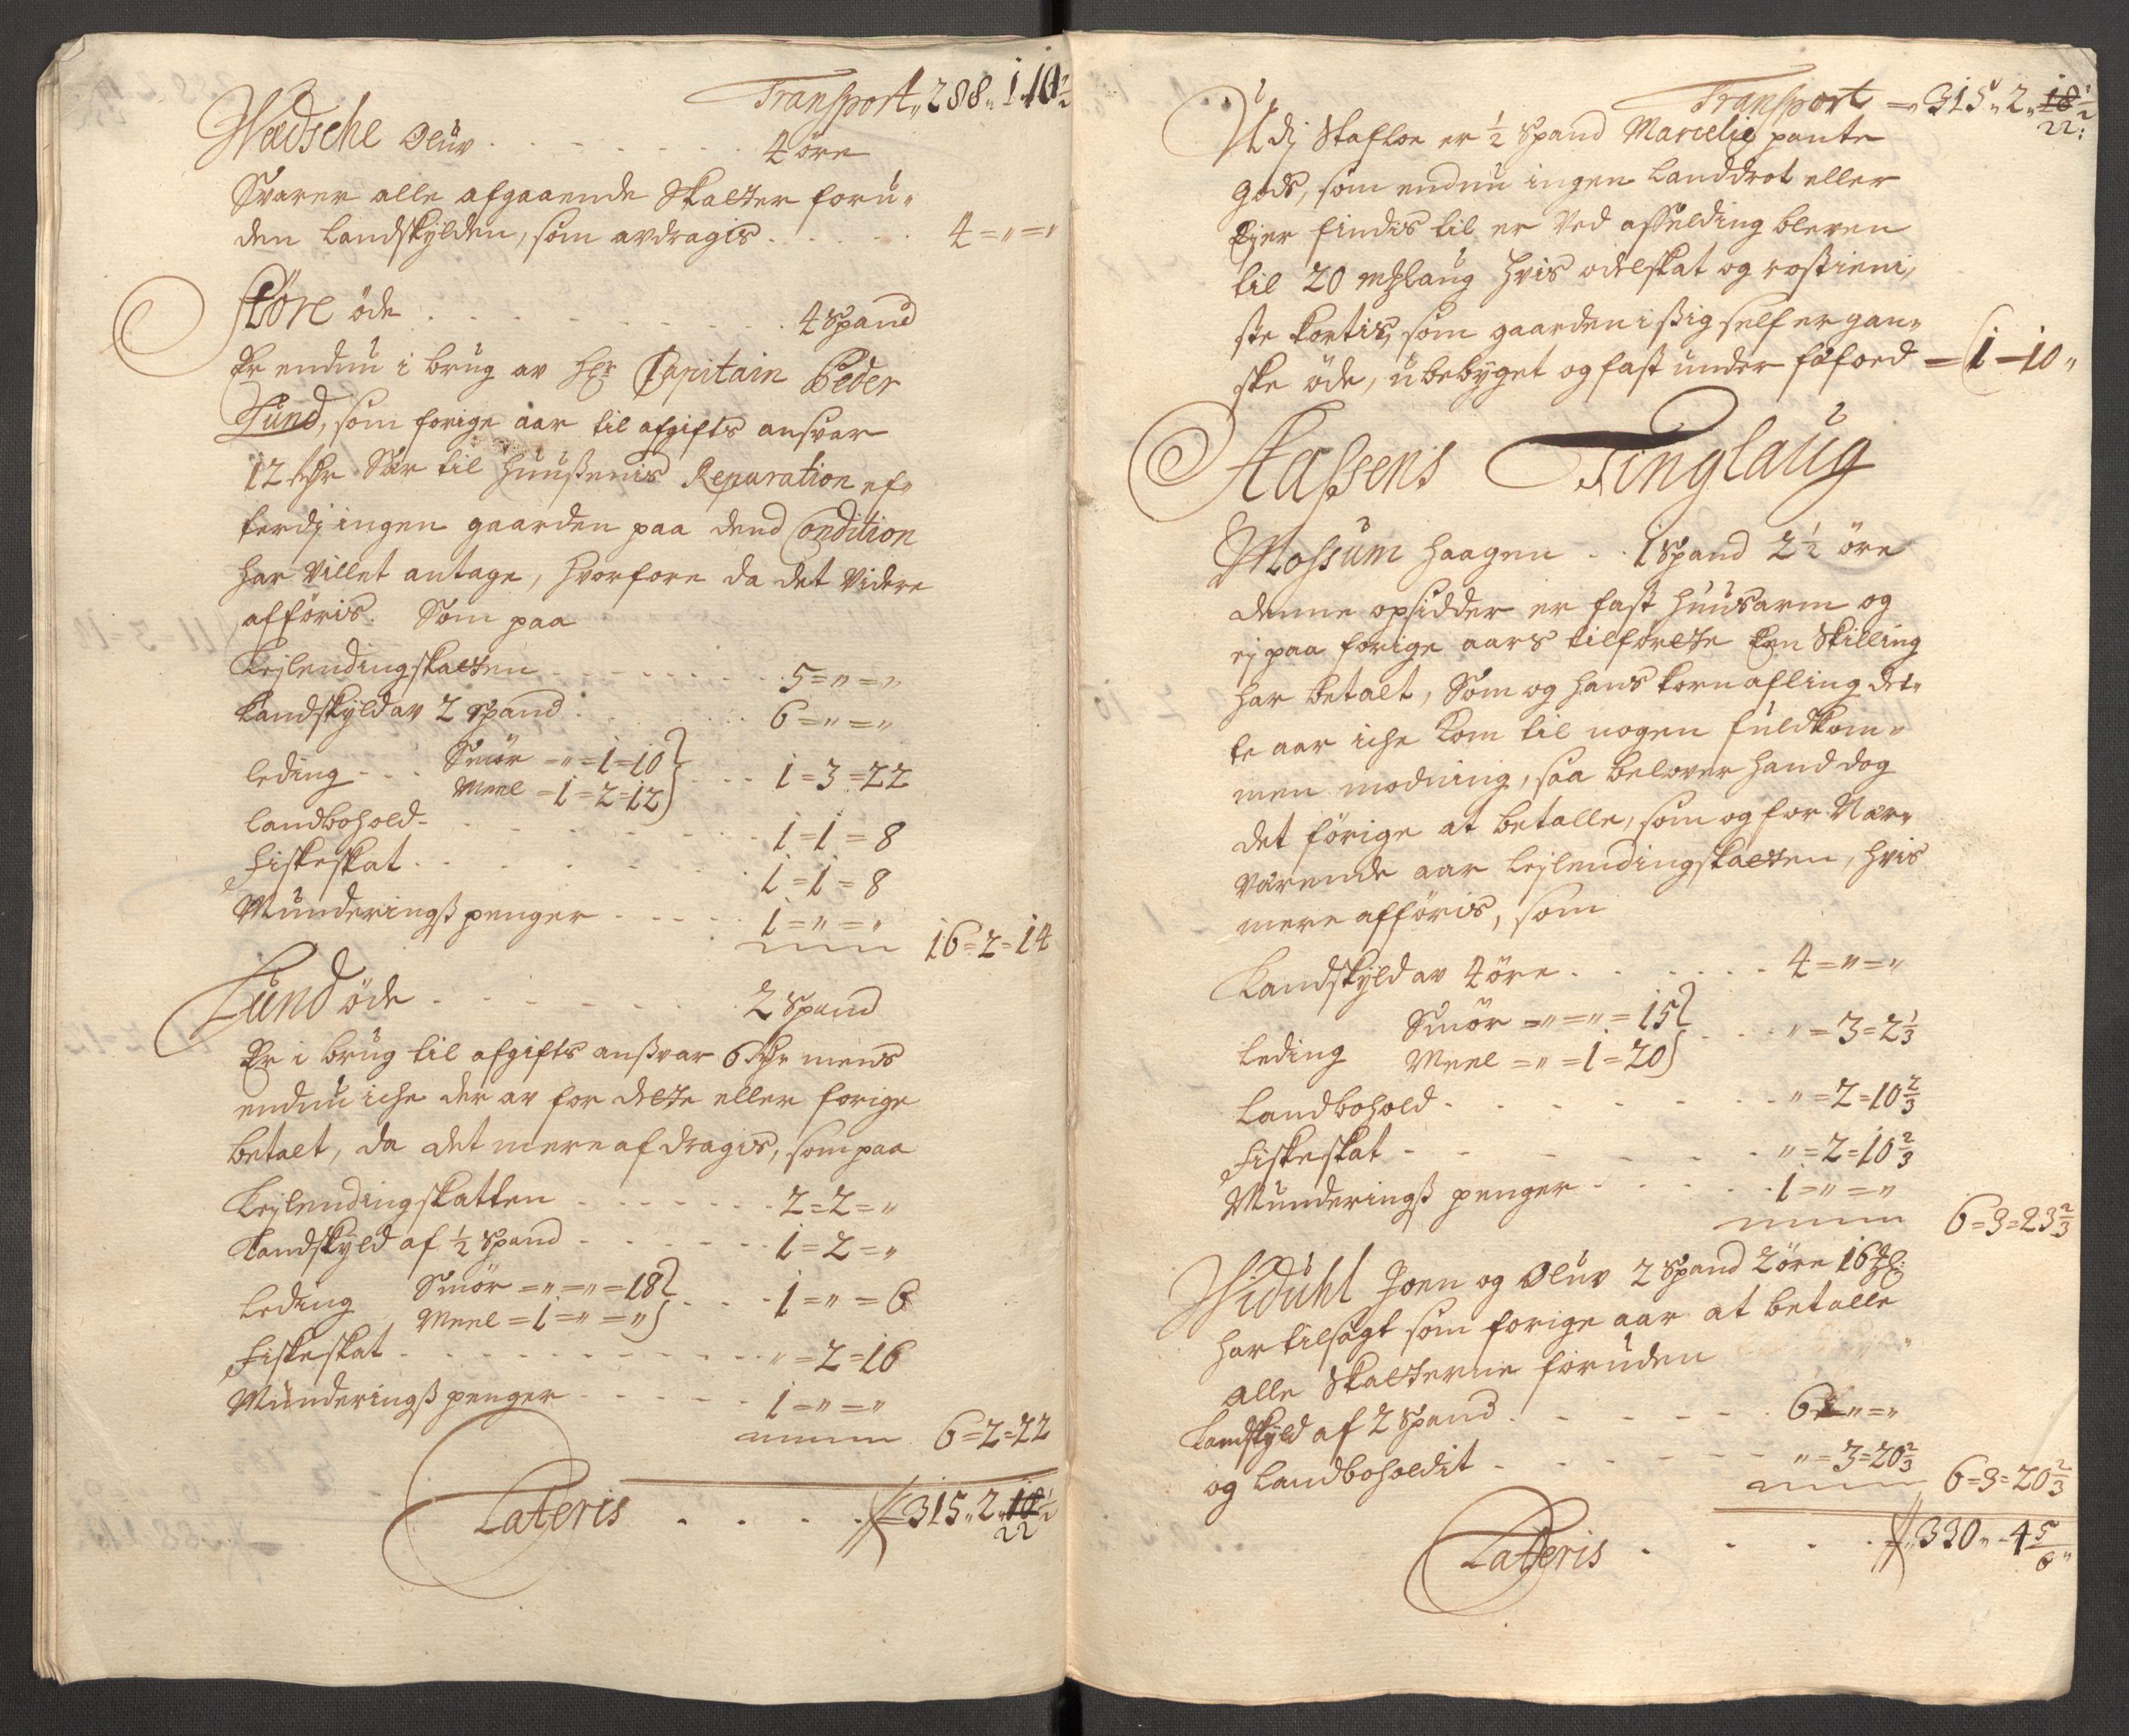 Transport „ 288 „ 1 „ 10 ½
Wædsche Oluv . . . . . . . 4 öre
Svarer alle afgaaende Skatter foru-
den Landskylden, som avdragis . . . . . 4 = „ = „
Störe öde . . . . . . . . . 4 Spand
Er endnu i brug av Hr Capitain Peder
Lund, som forige aar til afgifts ansvar
12 rdr Sær til Huußenis Reparation ef-
terdj ingen gaarden paa dend Condition
har villet antage, hvorfore da det videre
afföris. Som paa
Leylendingskatten . . . . . . . 5 = „ = „
Landskyld av 2 Spand . . . . . . 6 = „ = „
leding . . . Smör = „ = 1 = 10
Meel = 1 = 2 = 12 . . . 1 = 3 = 22
landbohold . . . . . . . . 1 = 1 = 8
Fiskeskat . . . . . . . . 1 = 1 = 8
Munderingß penger . . . . . 1 = „ = „
16 = 2 = 14
Lund öde . . . . . . . 2 Spand
Er i brug til afgifts anßvar 6 rdr mens
endnu iche der av for dette eller forige
betalt, da det mere af dragis, som paa
Leylendingskatten . . . . . . 2 = 2 = „
Landskyld af ½ Spand . . . . . . 1 = 2 = „
leding Smör = „ = „ = 18
Meel = 1 = „ = „ . . . 1 = „ = 6
Fiskeskat . . . . . . . . . „ = 2 = 16
Munderingß penger . . . . . 1 = „ = „
6 = 2 = 22
Lateris . . . . 315 „ 2 „ 18 ½
22
Transport = „ 315 „ 2 „ 18 ½
22:
Udj Stafloe er ½ Spand Marcelie pante
gods, som endnu ingen Landdrot eller
Ejer findis til er ved affelding bleven
til 20 mßlaug hvis odelskat og roßtieni-
ste kortis, som gaarden i sig self er gan-
ske öde, ubebyget og fast under fæfoed = 1 = 10 „
Aassens Tinglaug
Mossum Haagen . . 1 Spand 2 ½ öre
denne opsidder er fast huusarm og
ej paa forige aars tilforlte Een Skilling
har betalt, Som og hans kornafling det-
te aar iche kom til nogen fuldkom-
men modning, saa belover hand dog
det förige at betalle, som og for Nær-
værende aar Leylendingskatten, hvis
mere afföris, som
Landskyld av 4 öre . . . . . . 4 = „ = „
Leding Smör = „ = „ = 15
Meel = „ = 1 = 20 . . . „ = 3 = 2 ⅓
Landbohold . . . . . . . „ = 2 = 10 ⅔
Fiskeskat . . . . . . . „ = 2 = 10 ⅔
Munderingß penger . . . . . 1 = „ = „
6 = 3 = 23 ⅔
Widuhl Joen og Oluv 2 Spand 2 öre 16 ßl:
har tilsagt som forige aar at betalle
alle Skatterne foruden
Landskyld af 2 Spand . . . . . . 6 = „ = „
og Landboholdit . . . . . . „ = 3 = 20 ⅔
6 = 3 = 20 ⅔
Lateris . . . . „ 330 „ - 4 5/6 „